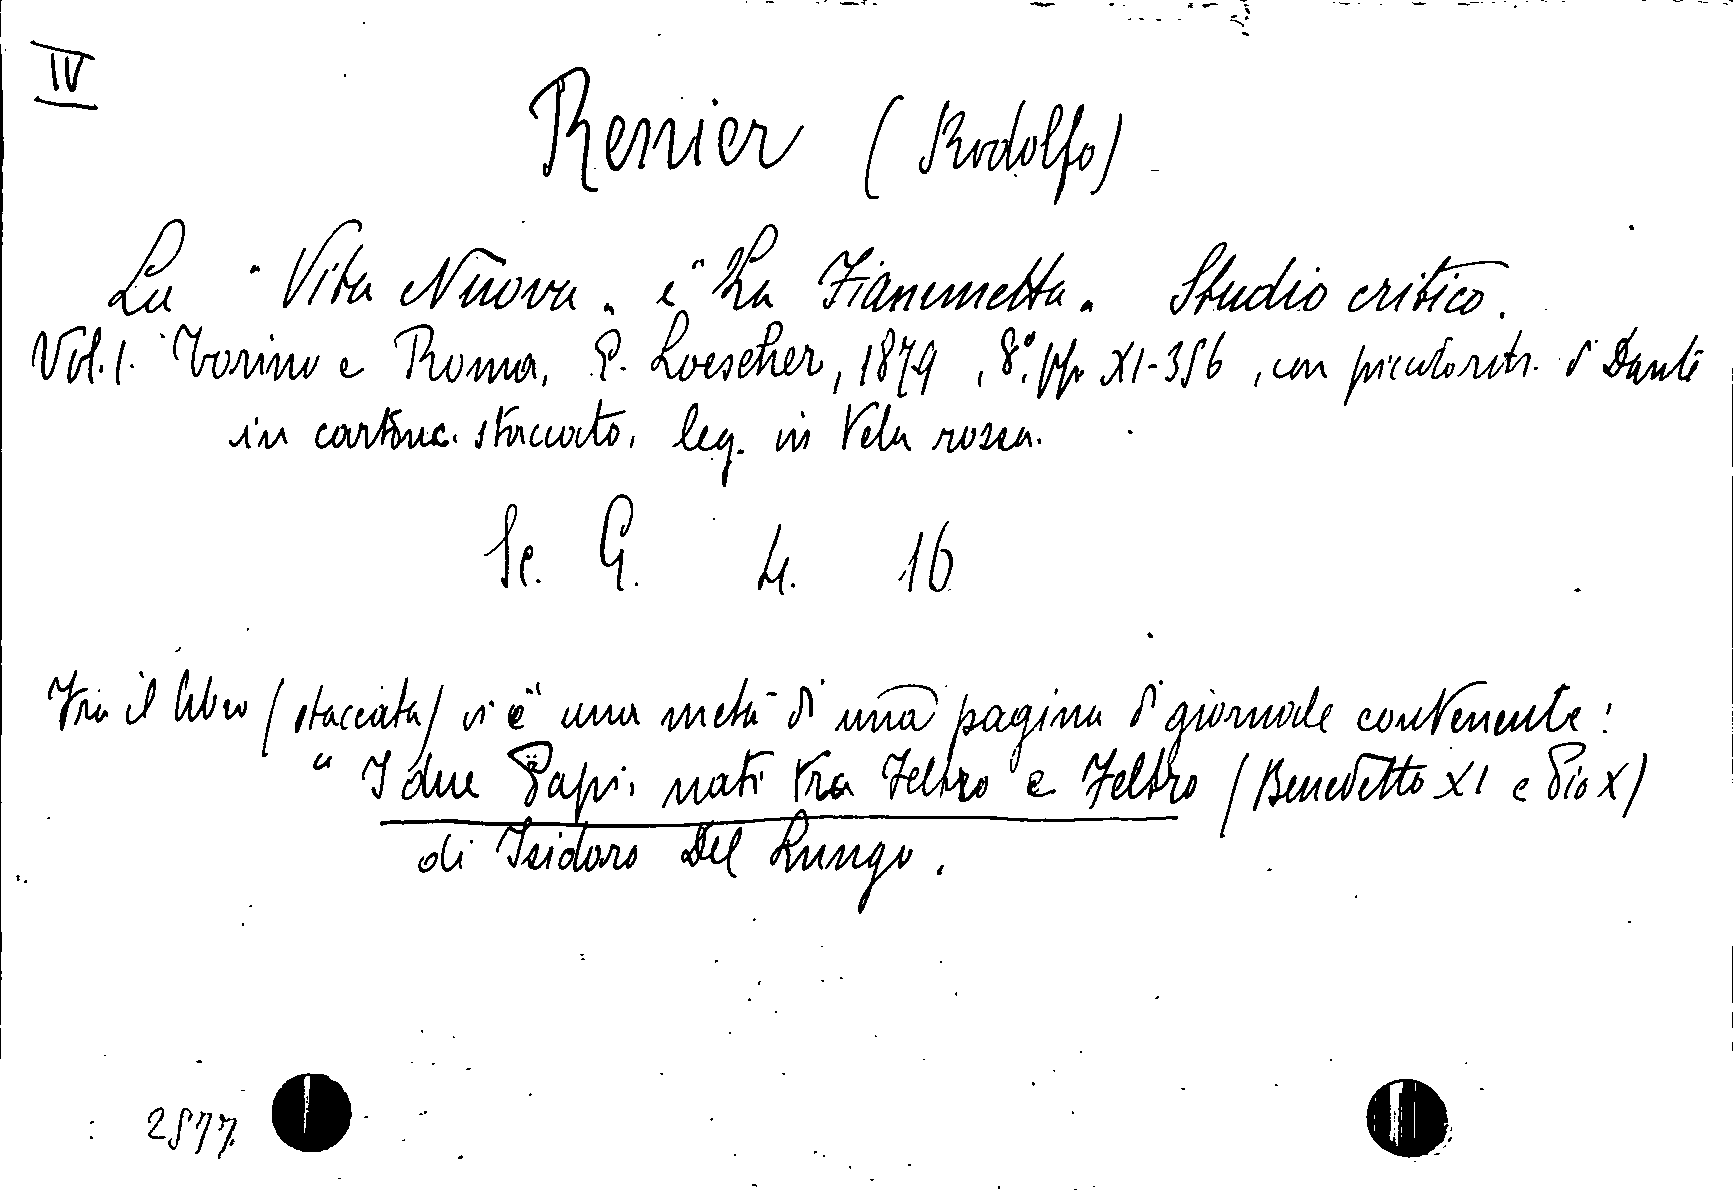 IV
Renier (Rodolfo)
La "Vita Nuova" e "La Fiammetta". Studio critico.
Vol. 1. Torino e Roma, E. Loescher, 1879, 8°, pp. XI-356, con piccolo ritr. di Dante
in cartonc. staccato, leg. in tela rossa.
Se. G. 4. 16
Tra il libro (staccata) vi è una metà di una pagina di giornale contenente:
"I due Papi, nati tra Feltro e Feltro (Benedetto XI e Pio X)
di Isidoro Del Lungo.
2577